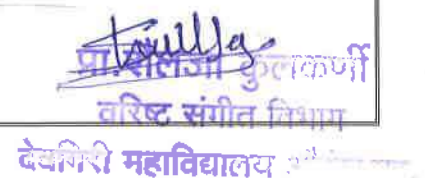 प्रा. शैलजा कुलकर्णी
वरिष्ट संगीत विभाग
देवगिरी महाविद्यालय